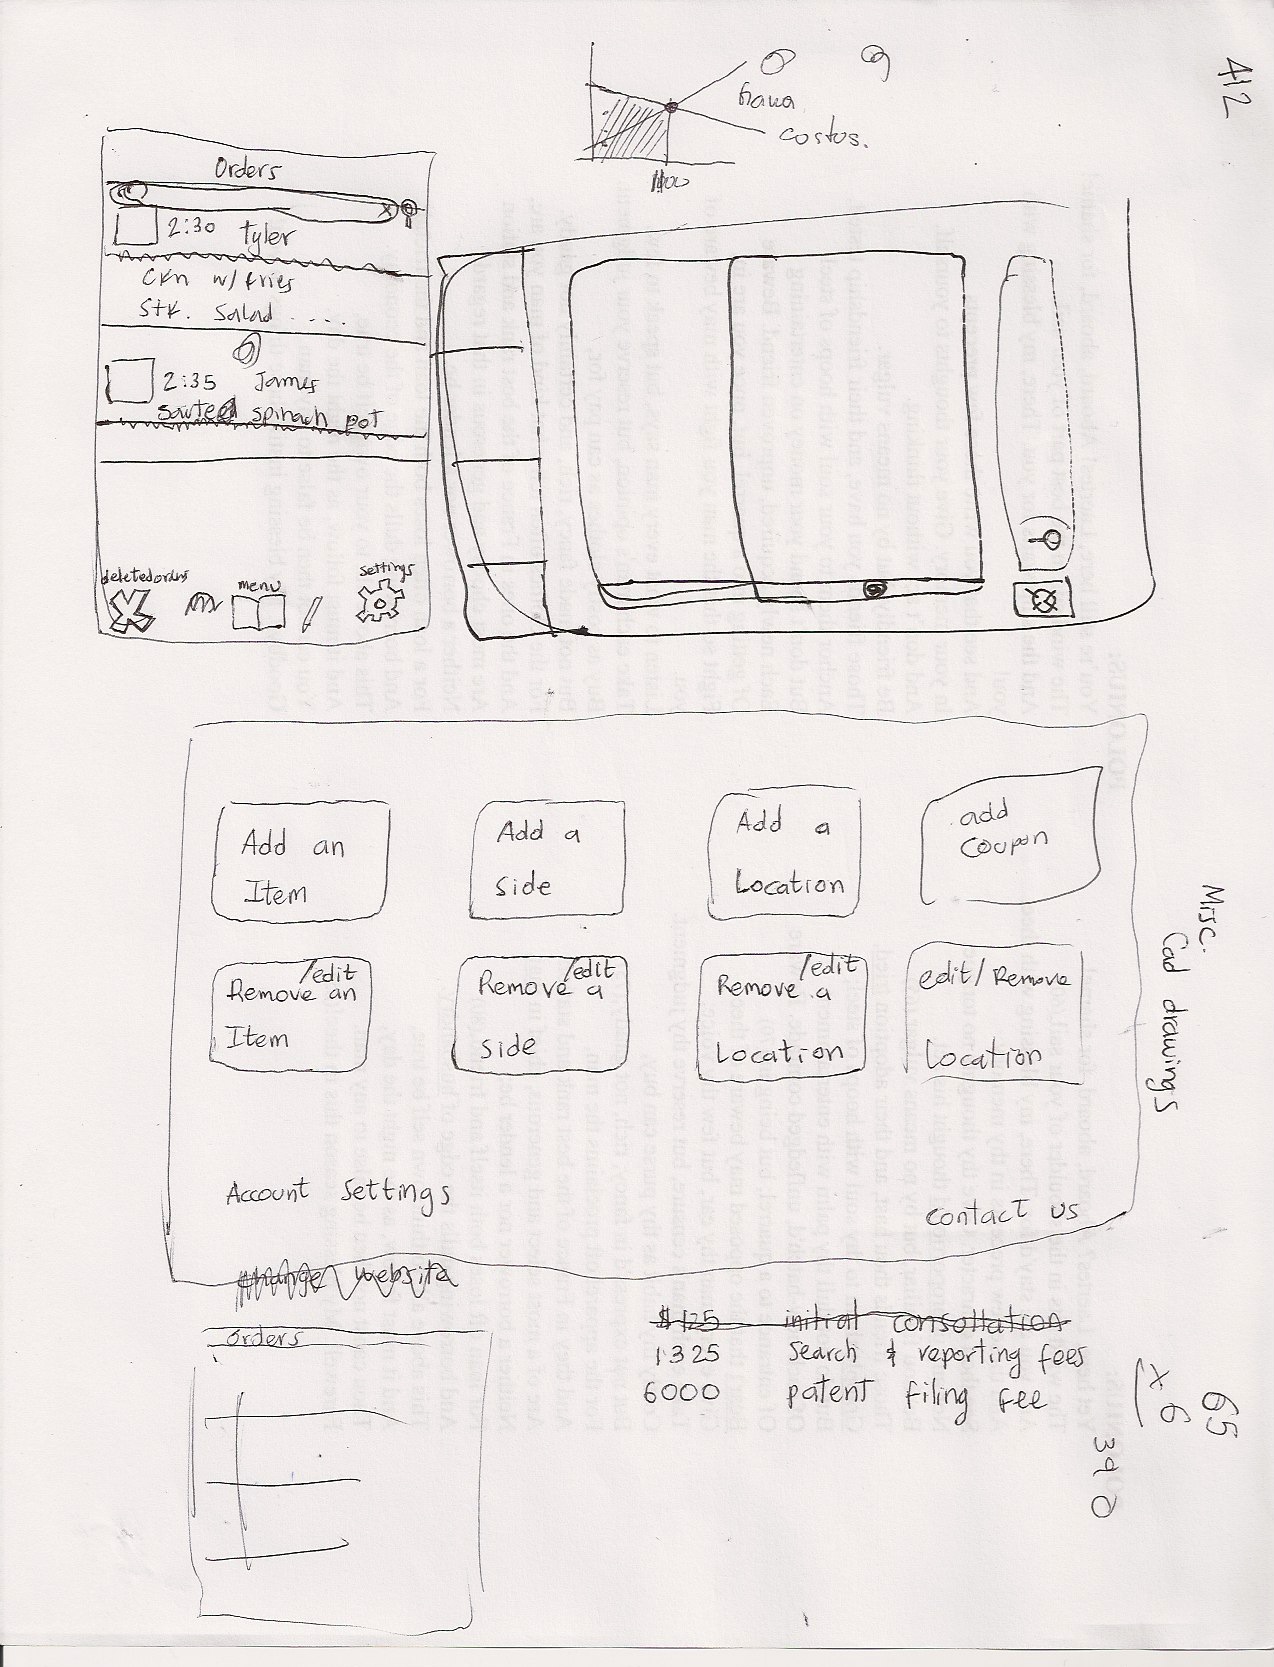 412
costos.
Now
Orders
2:30 Tyler
Ckn w/ fries
Stk. Salad ....
2:35 James
Sauteed spinach pot
deleted orders
menu
settings
Add an
Item
Add a
Side
Add a
Location
add
Coupon
/edit
Remove an
Item
/edit
Remove a
Side
/edit
Remove a
Location
edit/Remove
Location
Misc.
Cad drawings
Account Settings
contact us
change website
orders
$125 initial consoltation
1325 Search & reporting fees
6000 patent filing fee
65
x 6
390